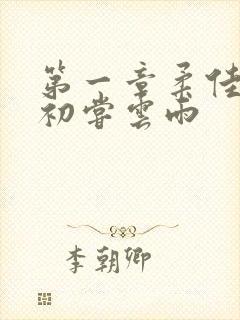 第一章柔佳
初嘗雲雨
李朝卿